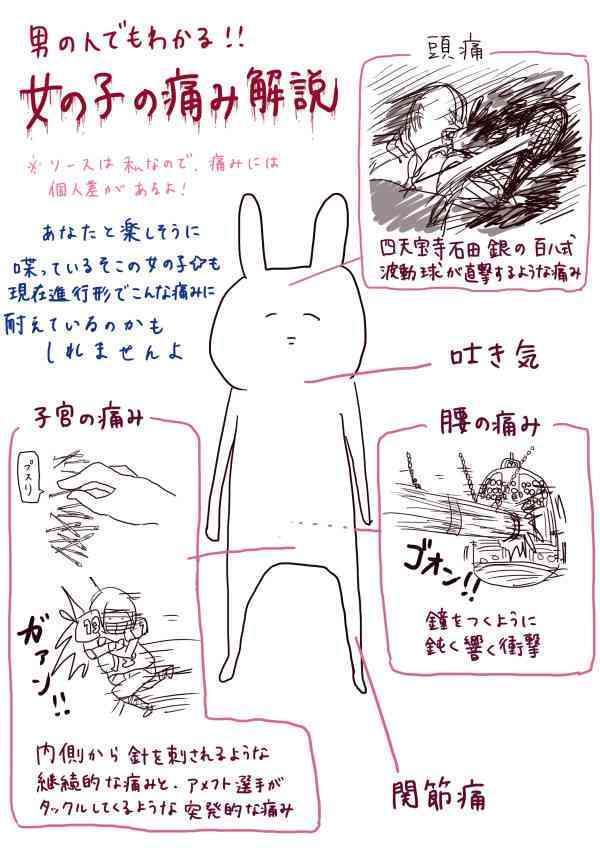 男の人でもわかる!!
女の子の痛み解説
※ソースは私なので、痛みには
個人差があるよ!
あなたと楽しそうに
喋っているそこの女の子☆も
現在進行形でこんな痛みに
耐えているのかも
しれませんよ
頭痛
四天宝寺石田銀の百八式
波動球が直撃するような痛み
吐き気
腰の痛み
ゴオン!!
鐘をつくように
鈍く響く衝撃
子宮の痛み
プスリ
13
ガァン!!
内側から針を刺されるような
継続的な痛みと、アメフト選手が
タックルしてくるような突発的な痛み
関節痛